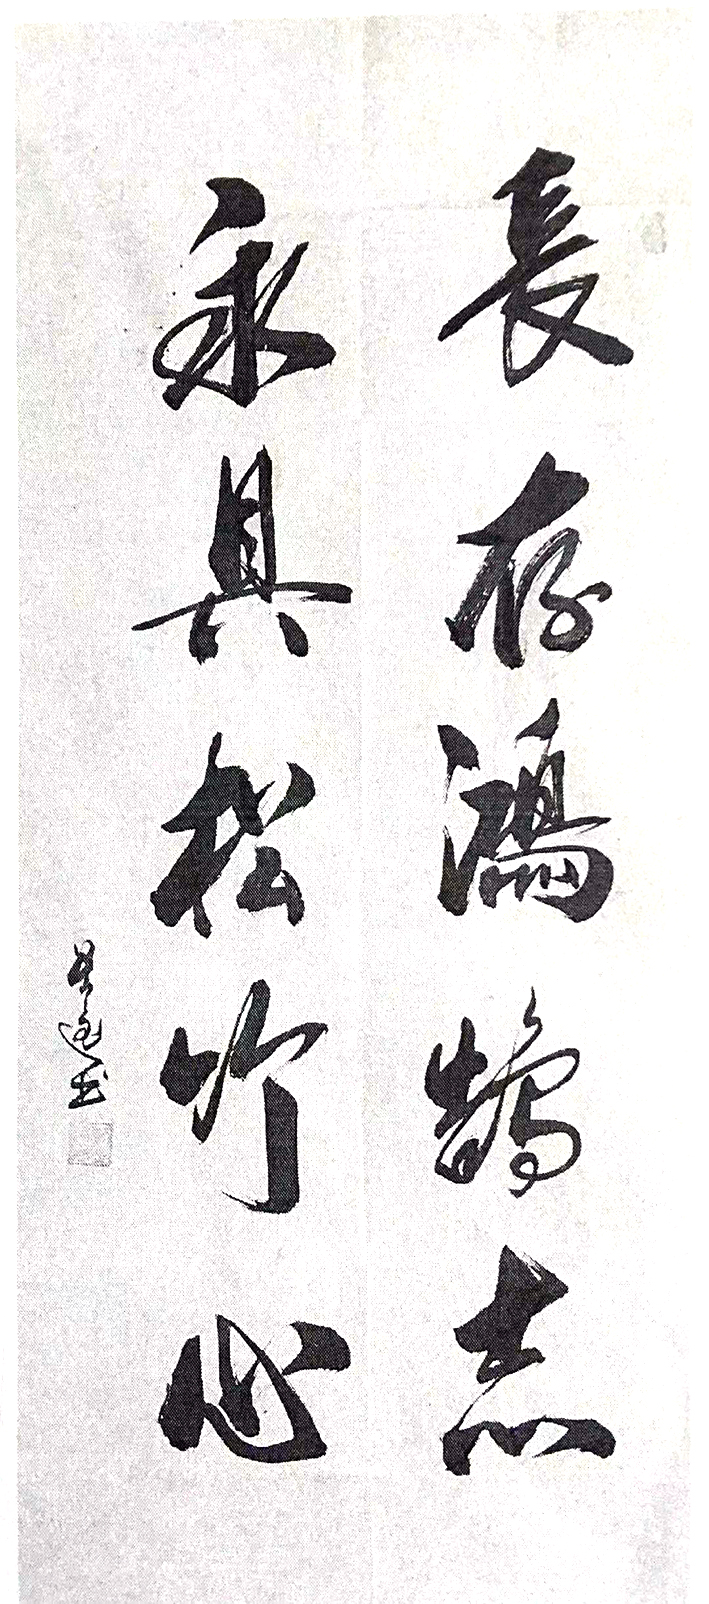 長存鴻鵠志
永具松竹心